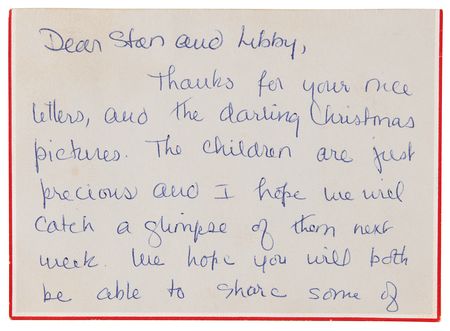 Dear Stan and Libby,
Thanks for your nice
letters, and the darling Christmas
pictures. The children are just
precious and I hope we will
catch a glimpse of them next
week. We hope you will both
be able to share some of